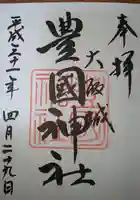 奉拝
大阪城
豊國神社
平成三十一年四月二十九日